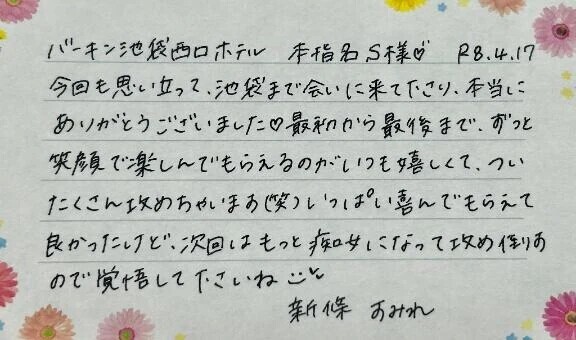 バーキン池袋西口ホテル 本指名S様♡ R8.4.17
今回も思い立って、池袋まで会いに来て下さり、本当に
ありがとうございました♡最初から最後まで、ずっと
笑顔で楽しんでもらえるのがいつも嬉しくて、つい
たくさん攻めちゃいまあ(笑)いっぱい喜んでもらえて
良かったけど、次回はもっと痴女になって攻め倒すあ
ので覚悟して下さいね
新條 すみれ